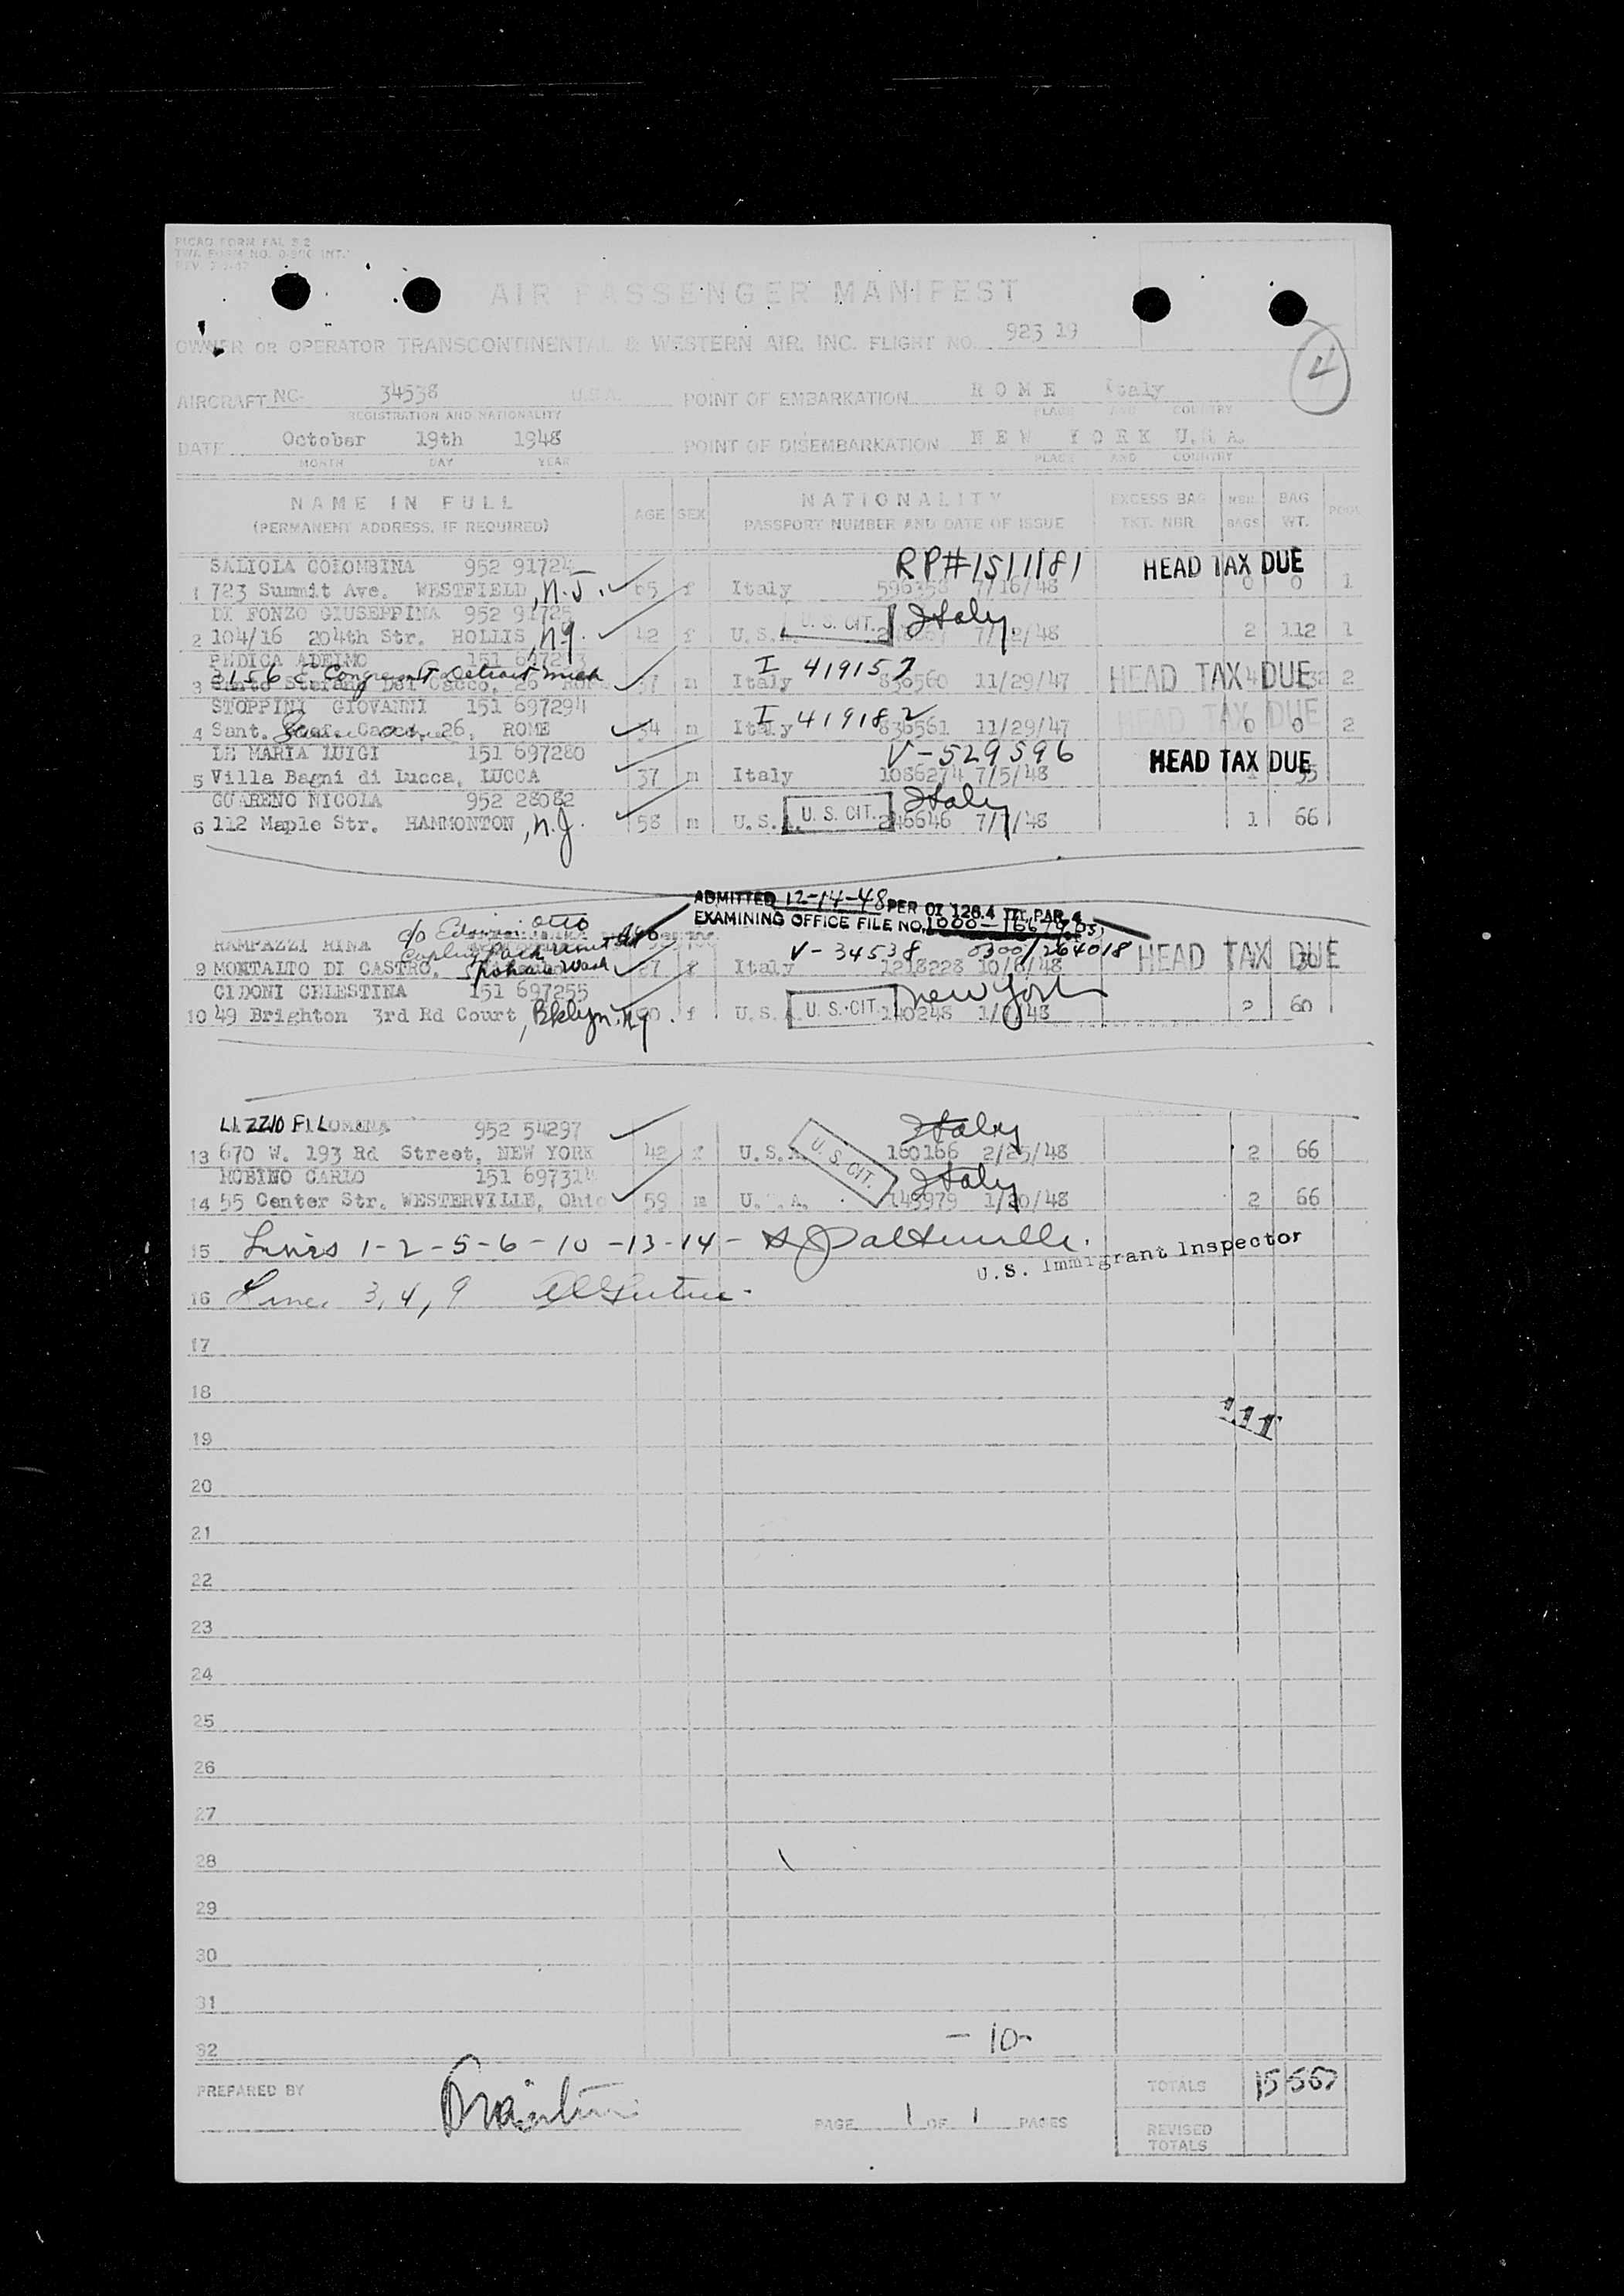 PICAO FORM FAL 2
TWA FORM NO. INT.
AIR PASSENGER MANIFEST
OWNER OR OPERATOR TRANSCONTINENTAL & WESTERN AIR, INC. FLIGHT NO. 923 19
4
AIRCRAFT NC- 34538 U.S.A. POINT OF EMBARKATION ROME Italy
REGISTRATION AND NATIONALITY PLACE AND COUNTRY
DATE October 19th 1948 POINT OF DISEMBARKATION NEW YORK U.S.A.
MONTH DAY YEAR PLACE AND COUNTRY
NAME IN FULL AGE SEX NATIONALITY EXCESS BAG NBR. BAG POOL
(PERMANENT ADDRESS, IF REQUIRED) PASSPORT NUMBER AND DATE OF ISSUE TKT. NBR BAGS WT.
SALIOLA COLOMBINA 952 91724 RP#1511181 HEAD TAX DUE
1 723 Summit Ave. WESTFIELD, N.J. 65 f Italy 7/16/48 0 0 1
DI FONZO GIUSEPPINA 952 91725 U.S. CIT. Italy
2 104/16 204th Str. HOLLIS, N.Y. 42 f U.S.A. 7/12/48 2 112 1
PEDICA ADELMO 151 I 419157
3156 E. Congress St Detroit Mich
3 Santo Stefano Del Cacco, 26 37 m Italy 836560 11/29/47 HEAD TAX DUE 2
STOPPINI GIOVANNI 151 697294 I 419182 HEAD TAX DUE
4 Sant. Stef. Cacco, 26, ROME 34 m Italy 836561 11/29/47 0 0 2
DE MARIA LUIGI 151 697280 V-529596 HEAD TAX DUE
5 Villa Bagni di Lucca, LUCCA 37 m Italy 1086274 7/5/48
GUARENO NICOLA 952 28082 U.S. CIT. Italy
6 112 Maple Str. HAMMONTON, N.J. 58 m U.S.A. 246646 7/7/48 1 66
ADMITTED 12-14-48 PER OI 128.4 PAR 4
EXAMINING OFFICE FILE NO. 1000-
RAMPAZZI RINA c/o Otto V-34538 0300/264018 HEAD TAX DUE
9 MONTALTO DI CASTRO, Spokane Wash 27 f Italy 1218228 10/6/48
CIDONI CELESTINA 151 697255 U.S. CIT. New York
10 49 Brighton 3rd Rd Court, Bklyn. N.Y. f U.S.A. 140248 2 60
LIZZIO FILOMENA 952 54297 Italy
13 670 W. 193 Rd Street, NEW YORK 42 f U.S.A. U.S. CIT. 160166 2/25/48 2 66
ROBINO CARLO 151 697314 Italy
14 55 Center Str. WESTERVILLE, Ohio 59 m U.S.A. 1/20/48 2 66
15 Lines 1-2-5-6-10-13-14-
U.S. Immigrant Inspector
16 Lines 3, 4, 9
17
18
111
19
20
21
22
23
24
25
26
27
28
29
30
31
-10-
32
PREPARED BY PAGE 1 OF 1 PAGES TOTALS 15 567
REVISED TOTALS